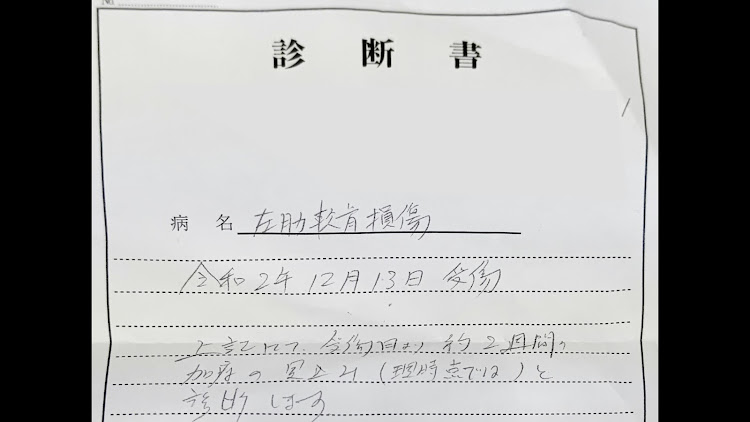 No.
診断書
病名 左肋軟骨損傷
令和2年12月13日 受傷
上記にて、受傷日より約2週間の
加療の見込み(現時点では)と
診断します